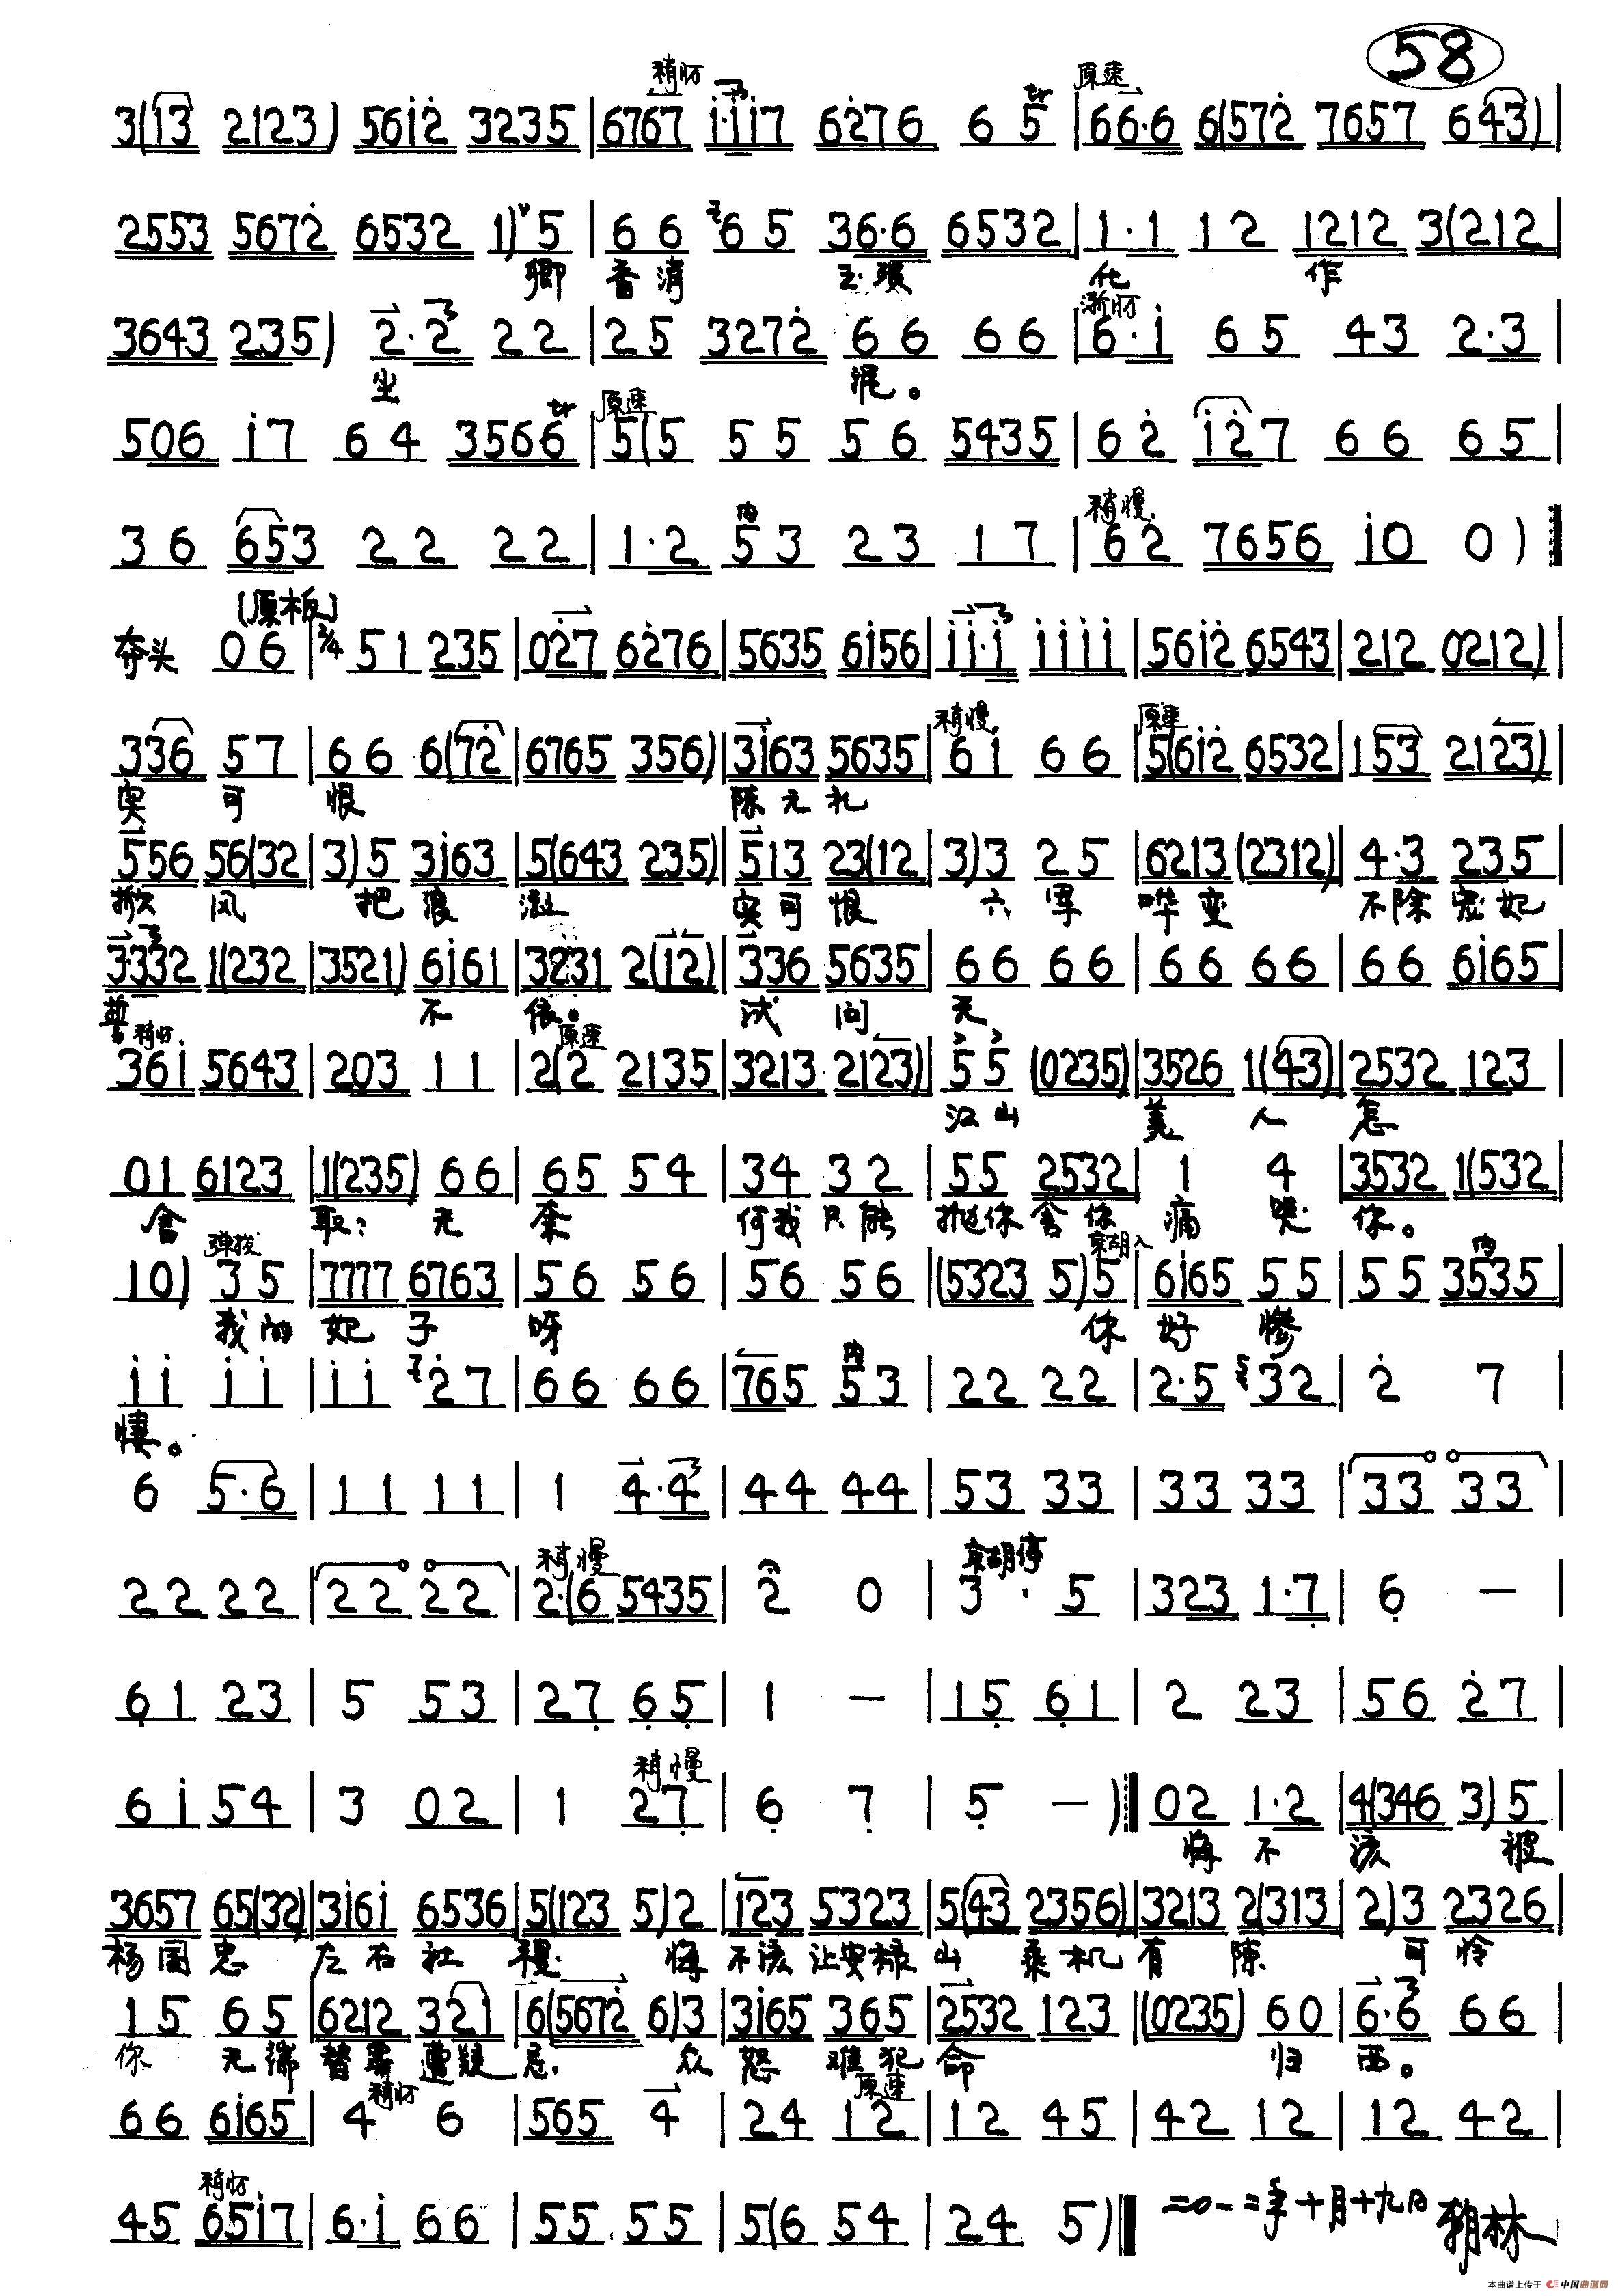 58
稍忺 原速
3(13 2123) 5612 3235 | 6767 1·117 6276 6 5 tr | 66·6 6(572 7657 643) |
2553 5672 6532 1) 5 | 66 65 36·6 6532 | 1·1 12 1212 3(212 |
卿 香消 玉殒 化 作
渐忺
3643 235) 2·2 22 | 25 3272 66 66 | 6·1 65 43 2·3 |
尘 泥。
原速
506 17 64 3566 tr | 5(5 55 56 5435 | 62 127 66 65 |
内 稍慢
36 653 22 22 | 1·2 53 23 17 | 62 7656 10 0) :‖
[原板]
夺头 06 | 2/4 51 235 | 027 6276 | 5635 6156 | 11·1 1111 | 5612 6543 | 212 0212) |
稍慢 原速
336 57 | 66 6(72 | 6765 356) | 3163 5635 | 61 66 | 5(612 6532 | 153 2123) |
实可恨 陈元礼
556 56(32 | 3)5 3163 | 5(643 235) | 513 23(12 | 3)3 25 | 6213 (2312) | 4·3 235 |
掀风 把浪激 实可恨 六军哗变 不除宠妃
3332 1(232 | 3521) 6161 | 3231 2(12) | 336 5635 | 66 66 | 66 66 | 66 6165 |
誓 不依。 试问天
稍忺 原速
361 5643 | 203 11 | 2(2 2135 | 3213 2123) | 55 (0235) | 3526 1(43) | 2532 123 |
江山 美人怎
01 6123 | 1(235) 66 | 65 54 | 34 32 | 55 2532 | 1 4 | 3532 1(532 |
舍取; 无奈何我只能抛你舍你痛哭你。
弹拨 京胡入 内
10) 35 | 7777 6763 | 56 56 | 56 56 | (5323 5)5 | 6165 55 | 55 3535 |
我的妃子呀 你好惨
内
11 11 | 11 27 | 66 66 | 765 53 | 22 22 | 2·5 32 | 2 7 |
悽。
6 5·6 | 11 11 | 1 4·4 | 44 44 | 53 33 | 33 33 | 33 33 |
稍慢 京胡停
22 22 | 22 22 | 2·(6 5435 | 2 0 | 3· 5 | 323 1·7 | 6 — |
61 23 | 5 53 | 27 65 | 1 — | 15 61 | 2 23 | 56 27 |
稍慢
61 54 | 3 02 | 1 27 | 6 7 | 5 —) :‖ 02 1·2 | 4(346 3)5 |
悔不该 被
3657 65(32) | 3161 6536 | 5(123 5)2 | 123 5323 | 5(43 2356) | 3213 2(313 | 2)3 2326 |
杨国忠左右社稷 悔不该让安禄山乘机有隙 可怜
15 65 | 6212 321 | 6(5672 6)3 | 3165 365 | 2532 123 | (0235) 60 | 6·6 66 |
你无端替罪遭疑忌 众怒难犯命 归西。
稍忺 原速
66 6165 | 4 6 | 565 4 | 24 12 | 12 45 | 42 12 | 12 42 |
稍忺
45 6517 | 6·1 66 | 55 55 | 5(6 54 | 24 5) ‖ 二〇一二年十月十九日
本曲谱上传于 中国曲谱网